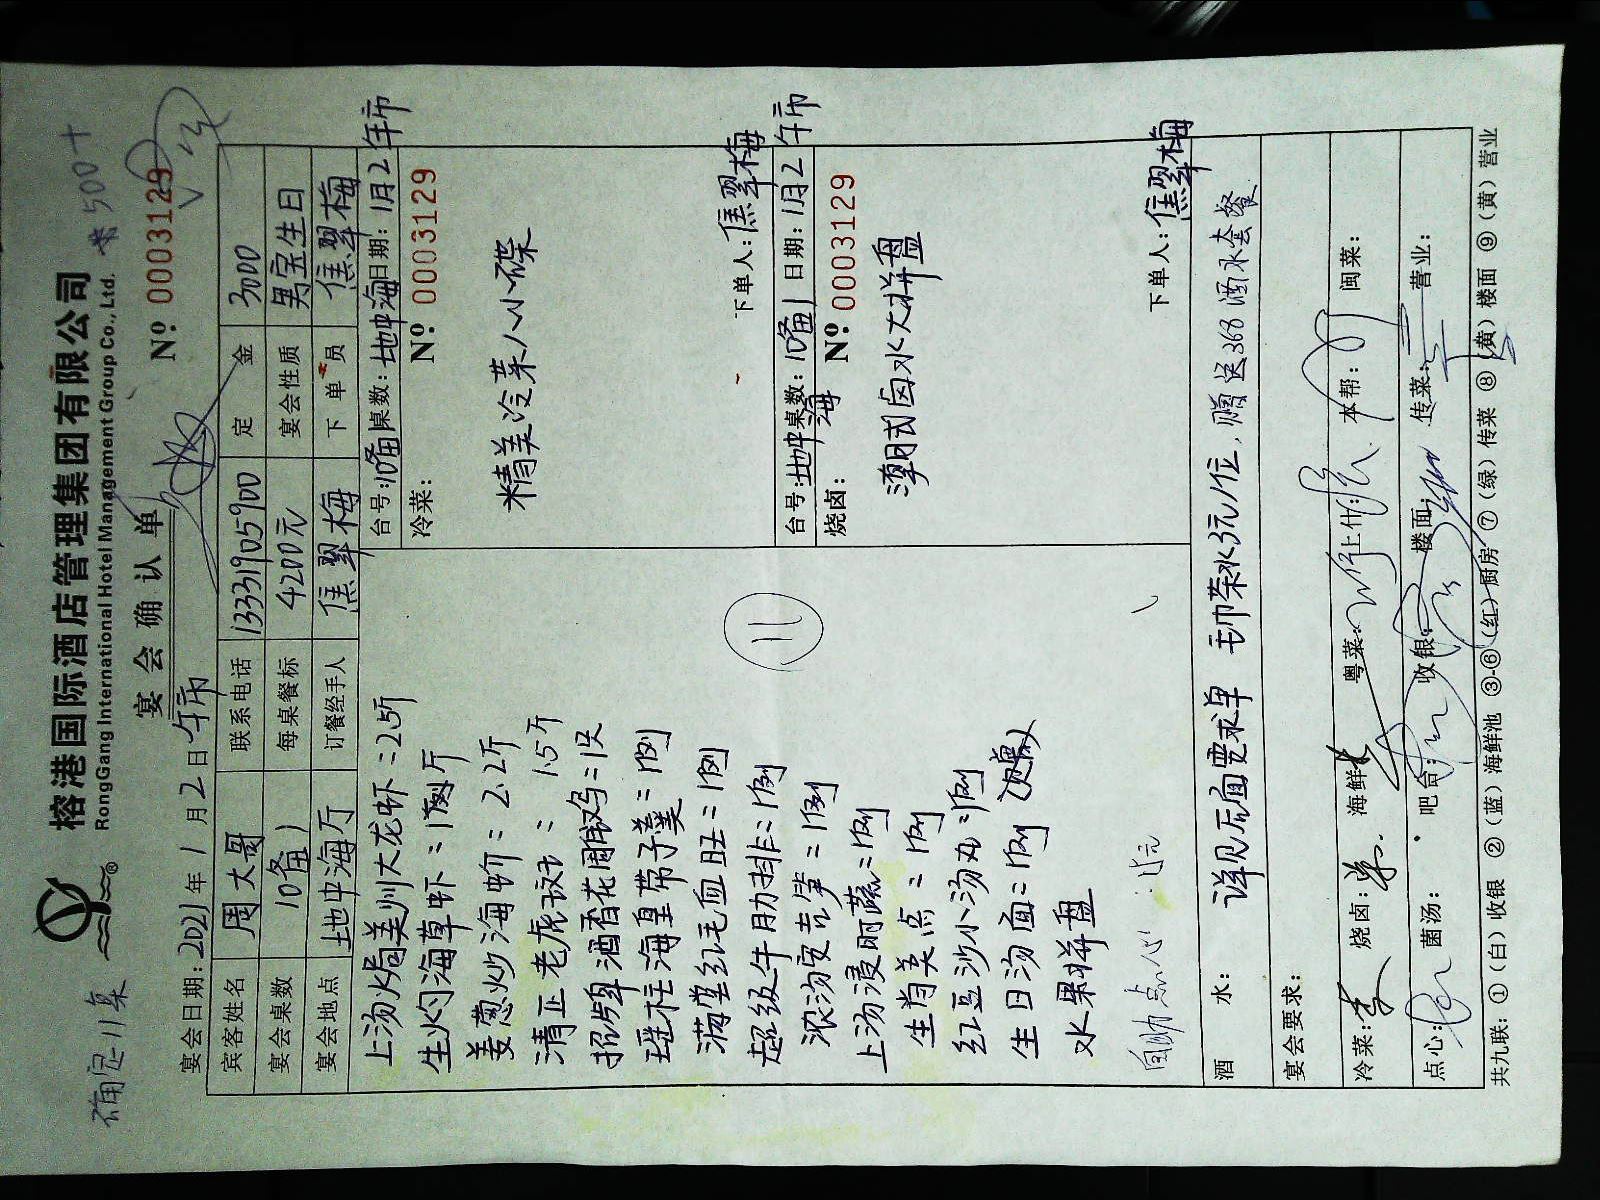 确定11桌
榕港国际酒店管理集团有限公司
RongGang International Hotel Management Group Co.,Ltd.
500+
宴会确认单
Nº 0003129
宴会日期: 2021年1月2日午市
宾客姓名 周大哥 联系电话 13331905900 定金 3000
宴会桌数 10备1 每桌餐标 4200元 宴会性质 男宝生日
宴会地点 地中海厅 订餐经手人 焦翠梅 下单员 焦翠梅
上汤焗美州大龙虾=2.5斤
生灼海草虾=1例斤
姜葱炒海中虾=2.2斤
清正老虎斑=1.5斤
招牌酒香花雕鸡=1只
瑶柱海皇带子羹=1例
满堂红毛血旺=1例
超级牛肋排=1例
浓汤安吉笋=1例
上汤浸时蔬=1例
生肖美点=1例
红豆沙小汤丸=1例
生日汤面=1例
水果拼盘
自助点心
11
台号:10备1桌数:地中海日期:1月2午市
冷菜: Nº 0003129
精美冷菜八小碟
下单人:焦翠梅
台号:地中海桌数:10备1日期:1月2午市
烧卤: Nº 0003129
潮式卤水大拼盘
下单人:焦翠梅
酒水: 详见后面要求单 毛巾茶水3元/位,赠送368酒水套餐
宴会要求:
冷菜: 烧卤: 海鲜: 粤菜: 上什: 本帮: 闽菜:
点心: 菌汤: 吧台: 收银: 楼面: 传菜: 营业:
共九联:①(白)收银 ②(蓝)海鲜池 ③-⑥(红)厨房 ⑦(绿)传菜 ⑧(黄)楼面 ⑨(黄)营业